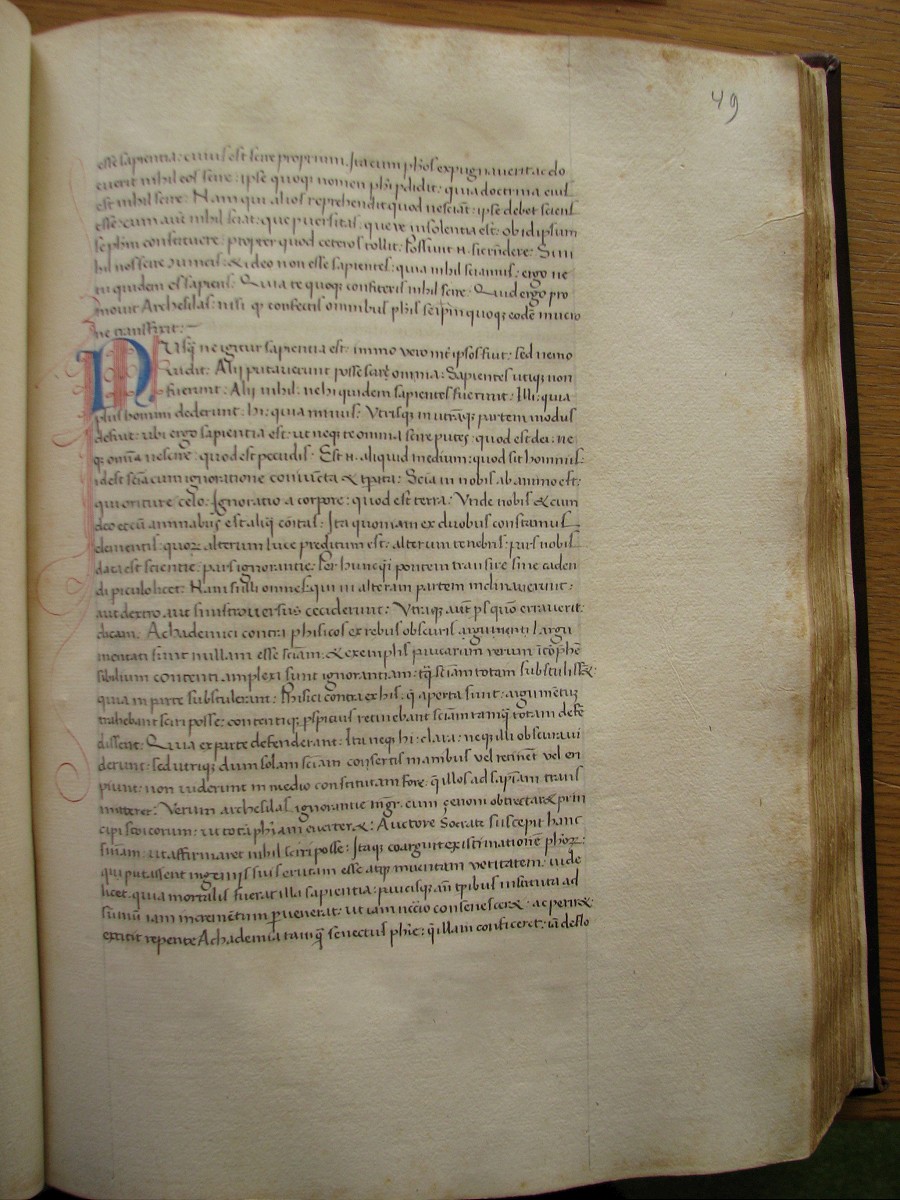 49
esse sapientia: cuius est scire proprium. Ita cum phos expugnaverit ac do
cuerit nihil eos scire: ipse quoq nomen phi pdidit: quia doctrina eius
est nihil scire. Nam qui alios reprehendit quod nesciat: ipse debet sciens
esse: cum aut nihil sciat: que pversitas: queve insolentia est: ob id ipsum
se phm constituere: propter quod ceteros tollit. Possunt .n. sic Si ni
hil nos scire & ideo non esse sapientes: quia nihil scimus: ergo ne
tu quidem es sapiens. Quia te quoq confiteris nihil scire. Quid ergo pro
movit Archesilas: nisi q confectis omnibus phis seipm quoq eode mucro
ne transfixit:
Nusq ne igitur sapientia est: immo vero int ipsos fuit: sed nemo
vidit. Alij putaverunt posse omnia: Sapientes utiq non
fuerunt. Alij nihil: ne hi quidem sapientes fuerunt. Illi: quia
plus homini dederunt: hi: quia minus. Utrisq in utraq partem modus
defuit: ubi ergo sapientia est: ut neq te omnia scire putes: quod est dei: ne
q omia nescire: quod est pecudis. Est .n. aliquid medium: quod sit hominis:
idest scia cum ignoratione coniucta & tpata. Scia in nobis ab animo est:
qui oritur e celo: Ignoratio a corpore: quod est terra: Unde nobis & cum
deo et cu animabus est aliq coitas. Ita quoniam ex duobus constamus
elementis: quoz alterum luce preditum est: alterum tenebris: pars nobis
data est scientie: pars ignorantie. Per hunc pontem transire sine caden
di piculo licet. Nam illi omnes qui in alteram partem inclinaverunt:
aut dextro aut sinistroversus ceciderunt: Utraq aut ps quo erraverit:
dicam. Achademici contra phisicos ex rebus obscuris argumenti argu
mentati sunt nullam esse sciam: & exemplis paucarum rerum icophe
sibilium contenti amplexi sunt ignorantiam: tq sciam totam substulissz:
quia in parte substulerant: Phisici contra ex his: q aperta sunt: argumetuz
trahebant sciri posse: contentiq pspicuis retinebant sciam tamq totam defe
dissent. Quia ex parte defenderant. Ita neq hi: clara: neq illi obscura vi
derunt: sed utriq dum solam sciam consertis manibus vel retinet vel eri
piunt: non viderunt in medio constitutam fore: q illos ad sapiam trans
mitteret. Verum archesilas ignorantie mgr. cum zenoni obtrectaret prin
cipi stoicorum: ut tota phiam everteret: Auctore Socrate suscepit hanc
sniam: ut affirmaret nihil sciri posse: Itaq coarguit existimatione phoz:
qui putassent ingenijs suis erutam esse atq inventam veritatem: vide
licet. quia mortalis fuerat illa sapientia: paucisq an tpibus instituta ad
sumu iam incremetum pvenerat: ut iam consenesceret: ac periret:
extitit repente Achademia tamq senectus phie: q illam conficeret: ia deflo